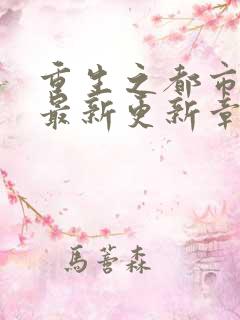 重生之都市
最新更新章
馬薈森